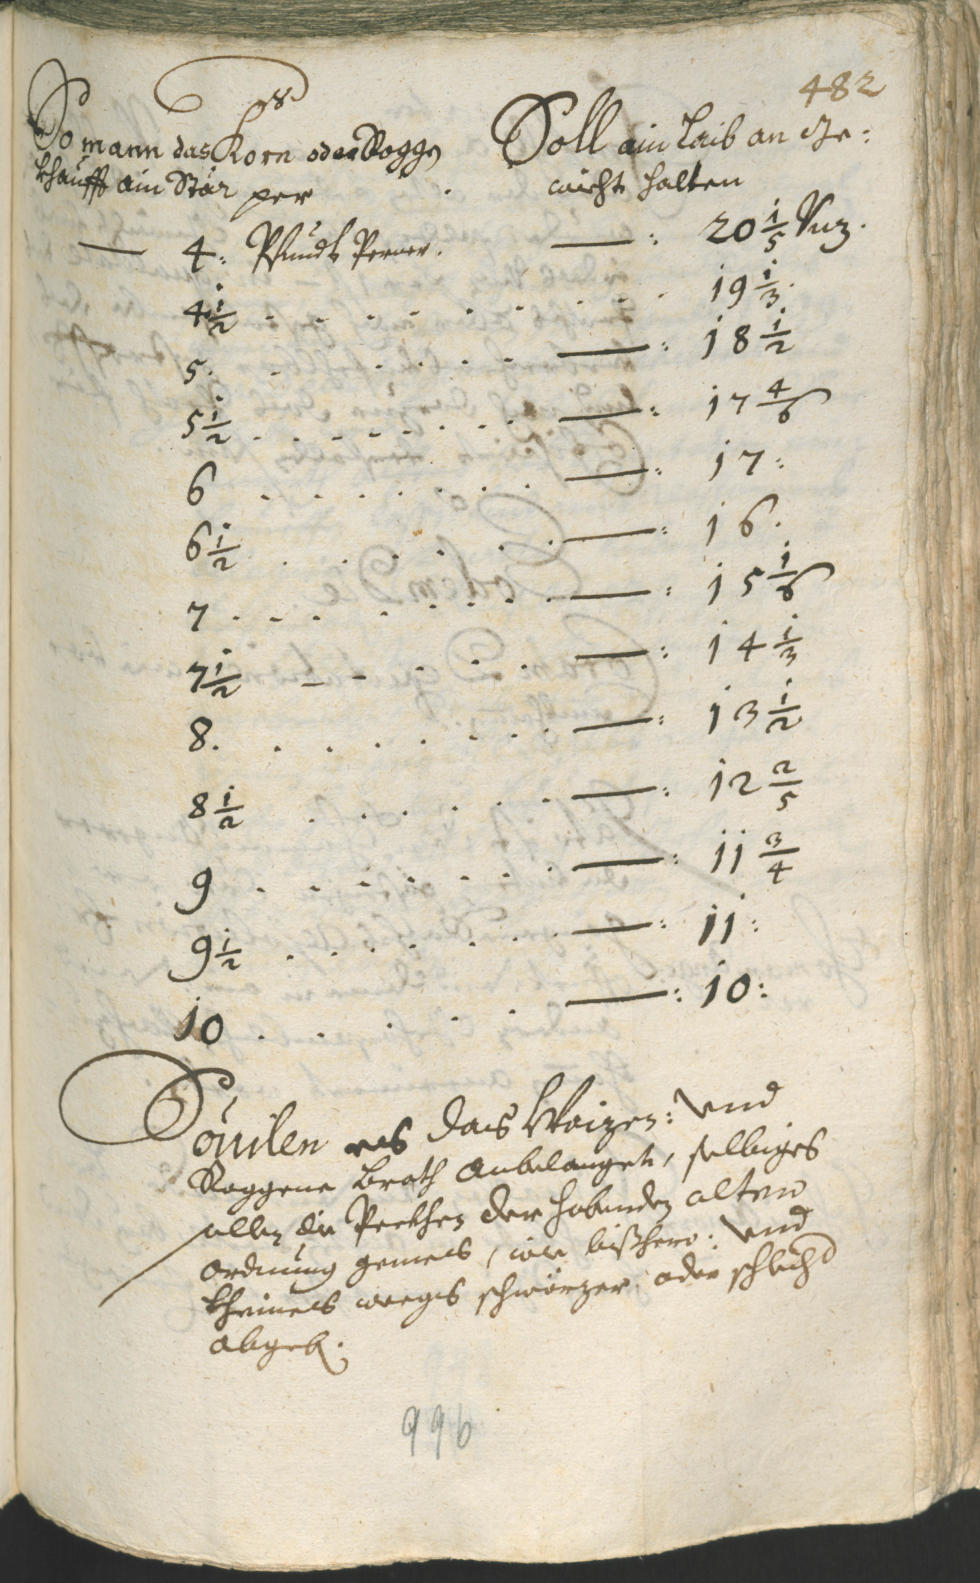 482
So mann das Korn oder Roggen
khaufft ain Stär per
Soll ain Laib an Ge:
wicht halten
4: Pfundt Perner. — : 20 1/5 Unz.
4 1/2 . . . . . . . . 19 1/3.
5. . . . . . — : 18 1/2
5 1/2 . . . . . . . . — : 17 4/6
6 . . . . . . . . — : 17:
6 1/2 . . . . . — : 16.
7 . . . . . . . . — : 15 1/6
7 1/2 — . . . . — : 14 1/3
8. . . . . . . . — : 13 1/2
8 1/2 . . . . . — : 12 2/5
9 . . . . . . . — : 11 3/4
9 1/2 . . . . . . — : 11:
10 . . . . . — : 10:
Souilen es das Waizen: Und
Roggene Broth Anbelanget, selbiges
allen die Peckhen der habenden alten
Ordnung gemess, wie bißhero: Und
kheines weegs schwörzer oder schlecht
abgeb.
996